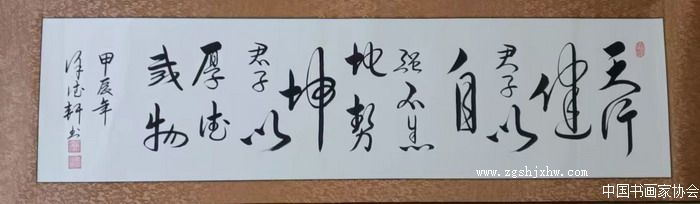 天行
健
君子以
自
强不息
地势
坤
君子以
厚德
载物
甲辰年
轩书
www.zgshjxhw.com
中国书画家协会